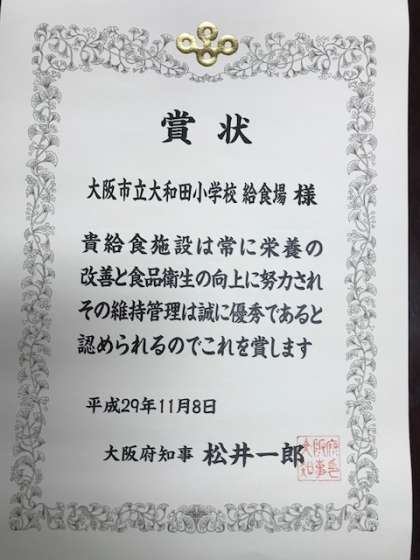 賞状
大阪市立大和田小学校 給食場 様
貴給食施設は常に栄養の
改善と食品衛生の向上に努力され
その維持管理は誠に優秀であると
認められるのでこれを賞します
平成29年11月8日
大阪府知事 松井一郎